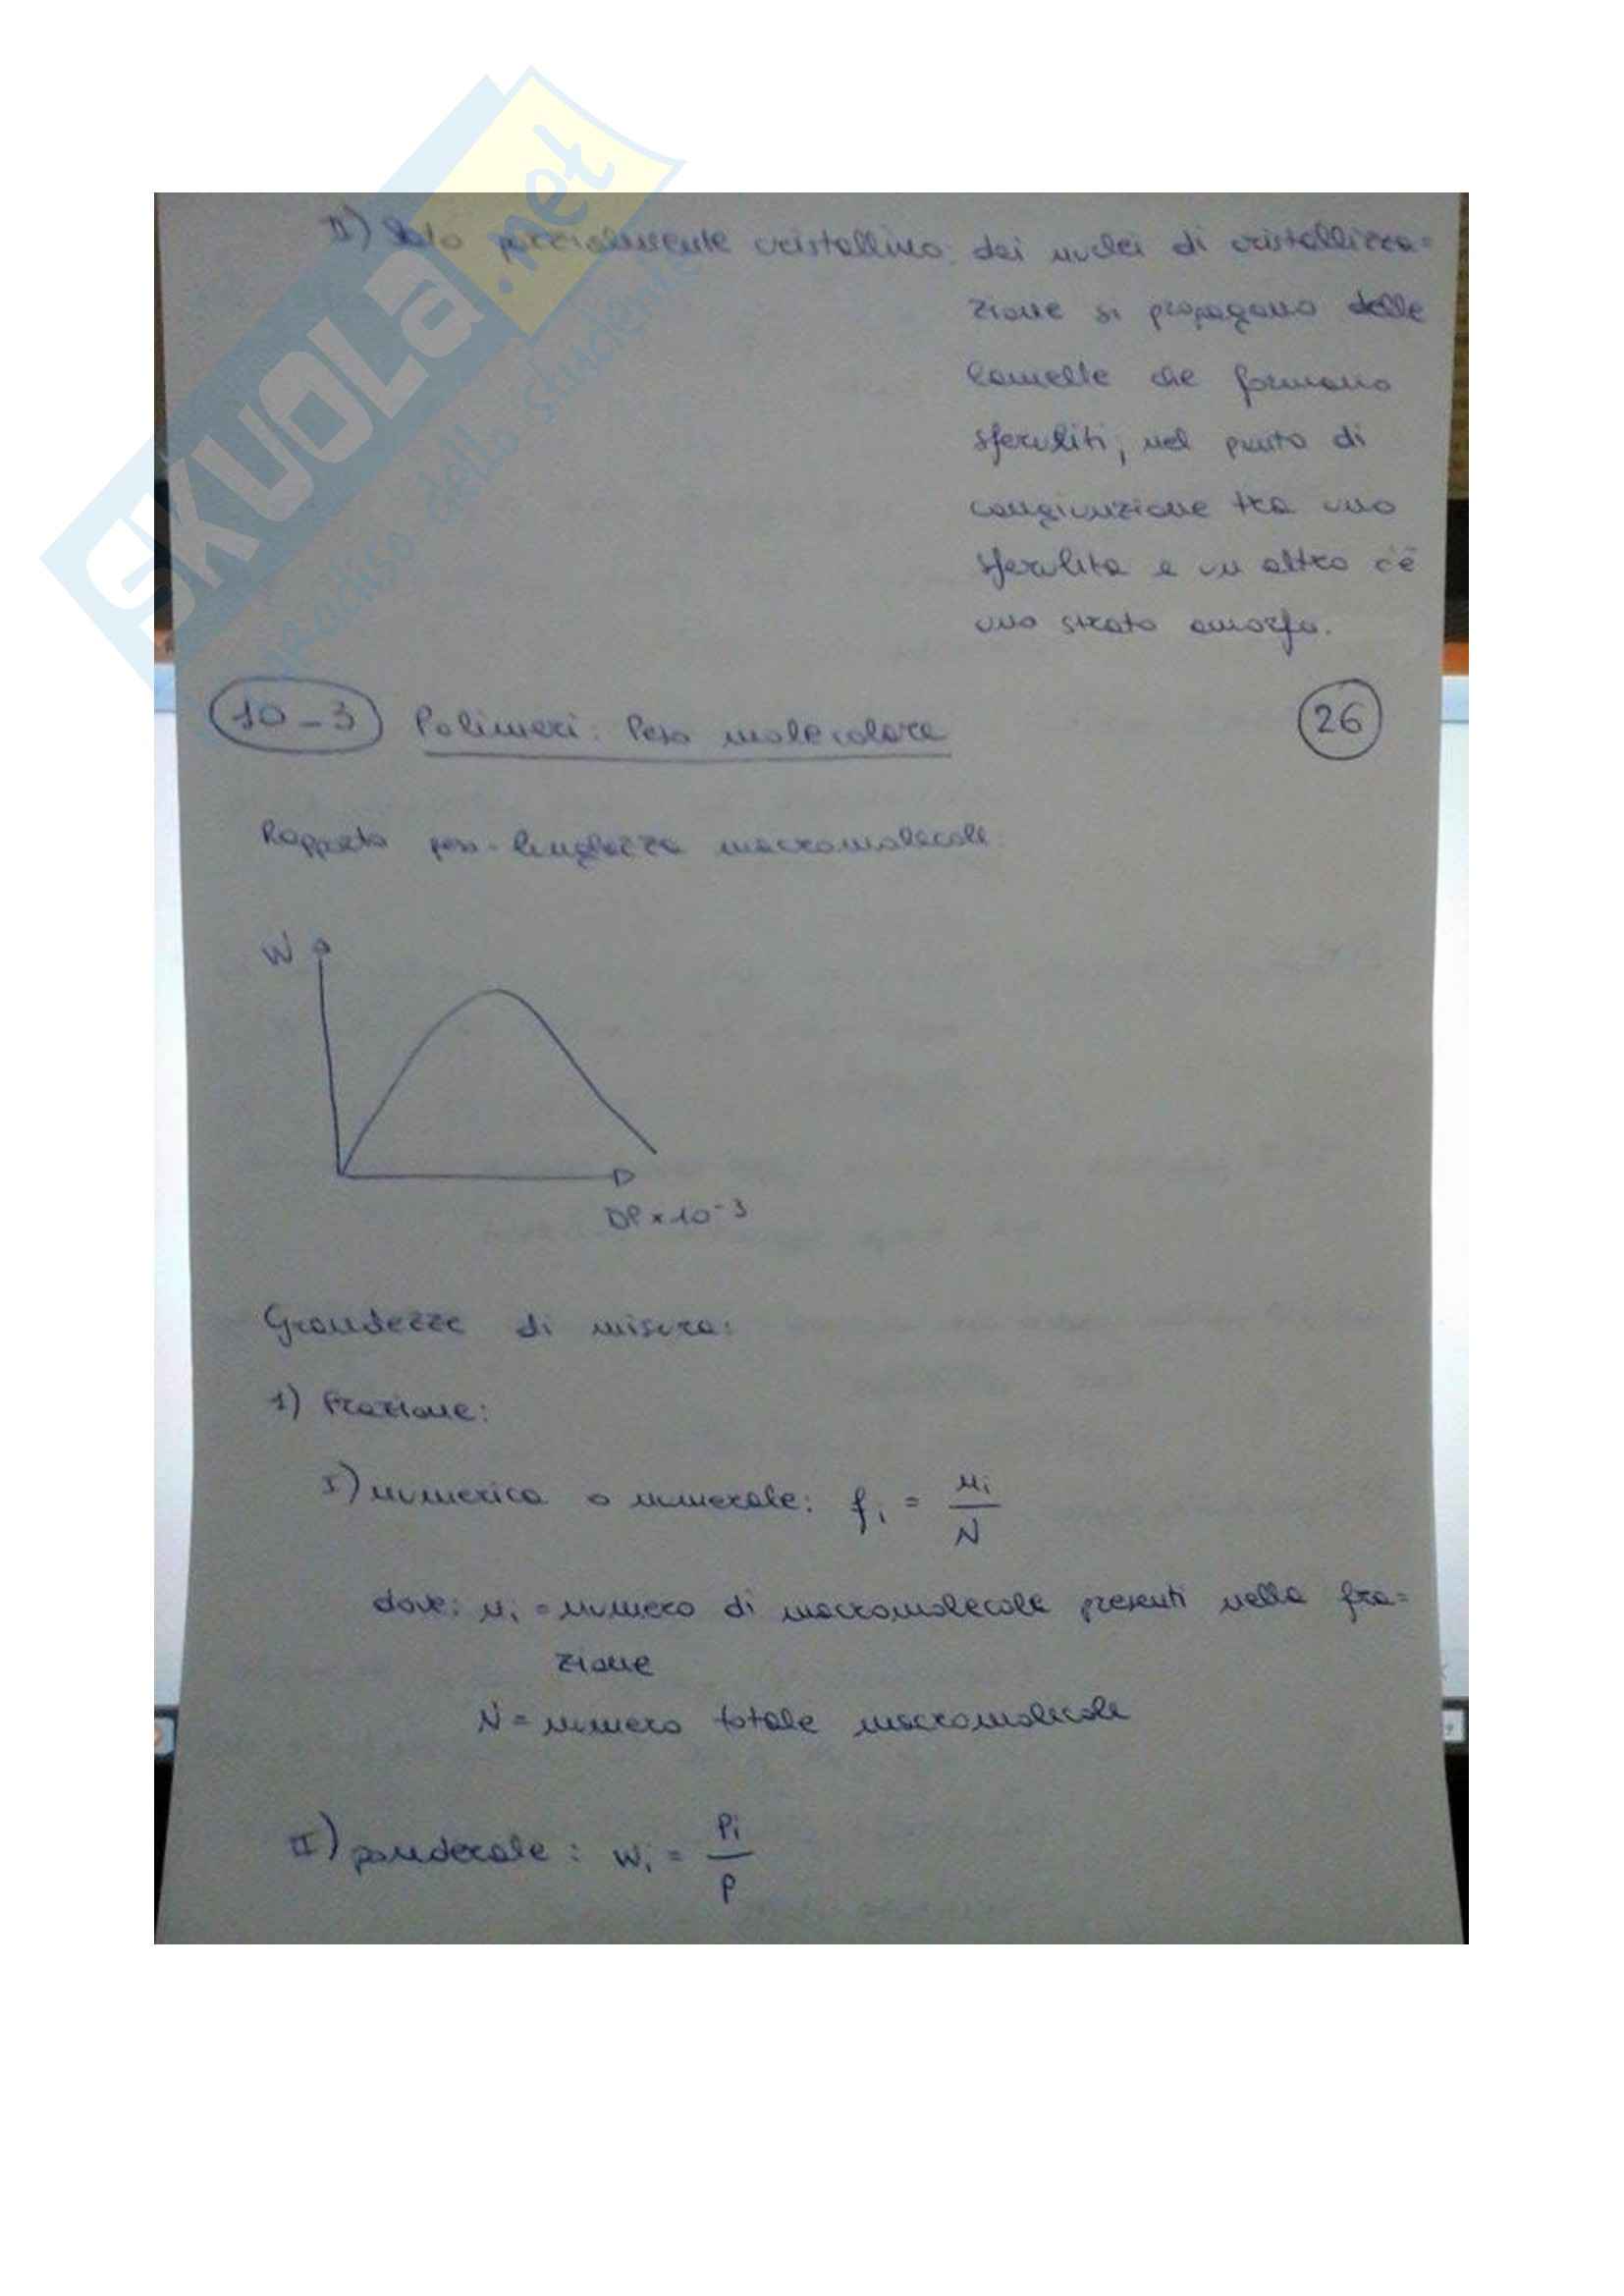 SKUOLA.net
paradiso dello studente
II) Solo parzialmente cristallino: dai nuclei di cristallizza=
zione si propagano delle
lamelle che formano
sferuliti; nel punto di
congiunzione tra uno
sferulita e un altro c'è
uno strato amorfo.
10-3 Polimeri: Peso molecolare 26
Rapporto peso-lunghezza macromolecole:
W
DP×10⁻³
Grandezze di misura:
1) Frazione:
I) numerica o numerale: fi = ni/N
dove: ni = numero di macromolecole presenti nella fra=
zione
N = numero totale macromolecole
II) ponderale: wi = Pi/P